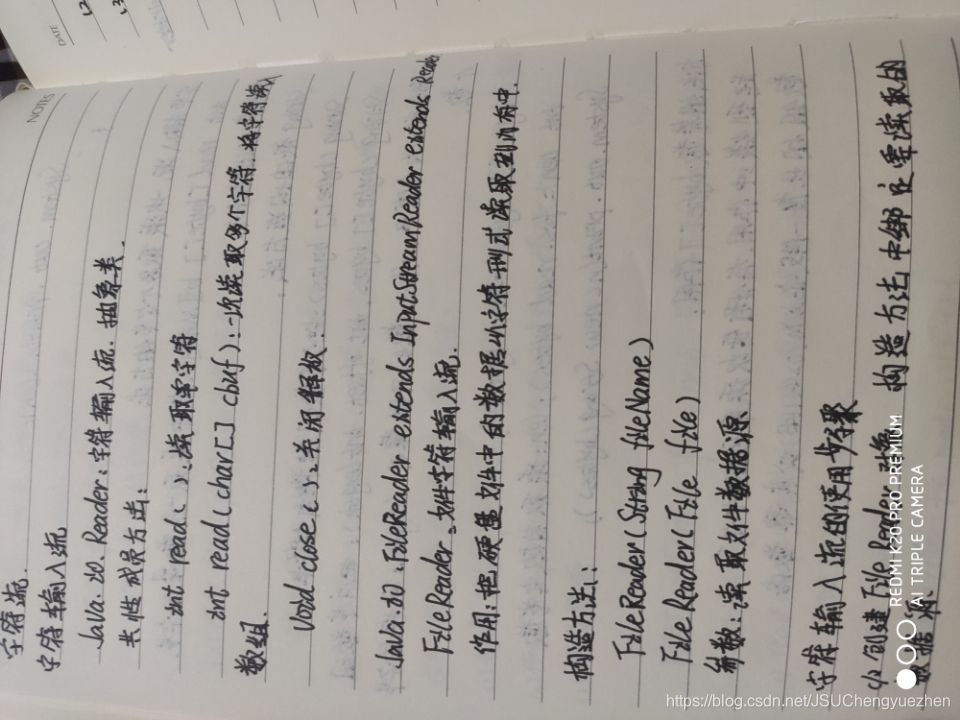 DATE
NOTES
字符流.
字符输入流
Java.io.Reader:字符输入流.抽象类.
共性成员方法:
int read():读取单字符
int read(char[] cbuf):一次读取多个字符.将字符读入
数组.
Void cose():关闭释放.
Java.io.FileReader extends InputStreamReader extends Reade
FileReader:文件字符输入流.
作用:把硬盘文件中的数据以字符形式读取到内存中.
构造方法:
FileReader(String fileName)
FileReader(File file)
参数:读取文件数据源
字符输入流的使用步骤
1>创建File Reader对象 构造方法中绑定要读取的
数据源.
REDMI K20 PRO PREMIUM
AI TRIPLE CAMERA
https://blog.csdn.net/JSUChengyuezhen